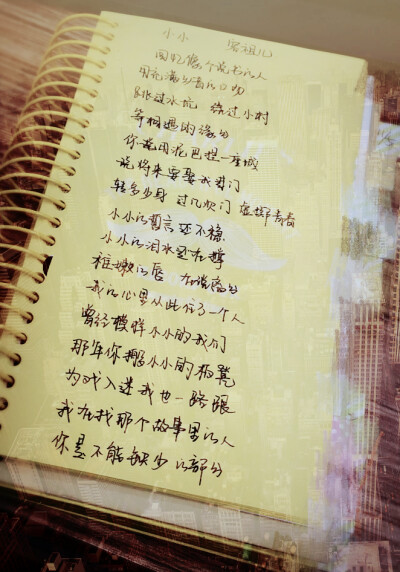 小小 容祖儿
回忆像个说书的人
用充满乡音的口吻
跳过水坑 绕过小村
等相遇的缘分
你说用泥巴捏一座城
说将来要娶我进门
转多少身 过几次门 虚掷青春
小小的誓言还不稳
小小的泪水还在撑
稚嫩的唇 在说离分
我的心里从此住了一个人
曾经模样小小的我们
那年你搬小小的板凳
为戏入迷我也一路跟
我在找那个故事里的人
你是不能缺少的部分